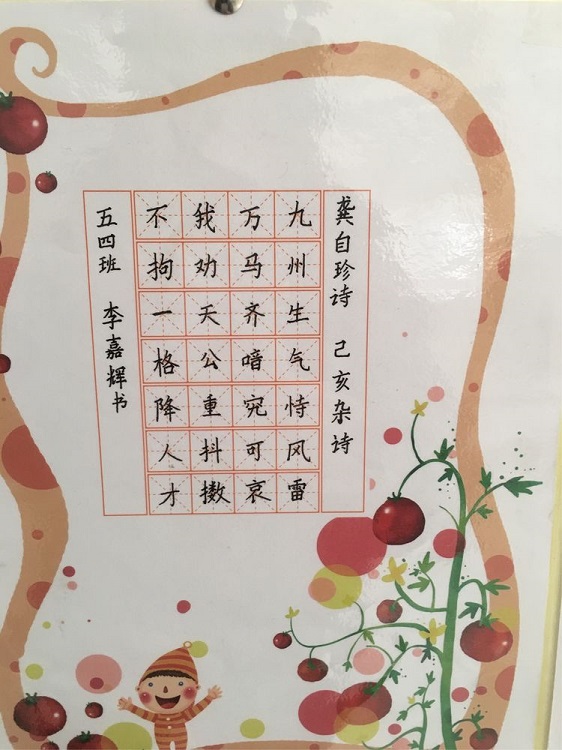 龚自珍诗 己亥杂诗
九州生气恃风雷
万马齐喑究可哀
我劝天公重抖擞
不拘一格降人才
五四班 李嘉辉书